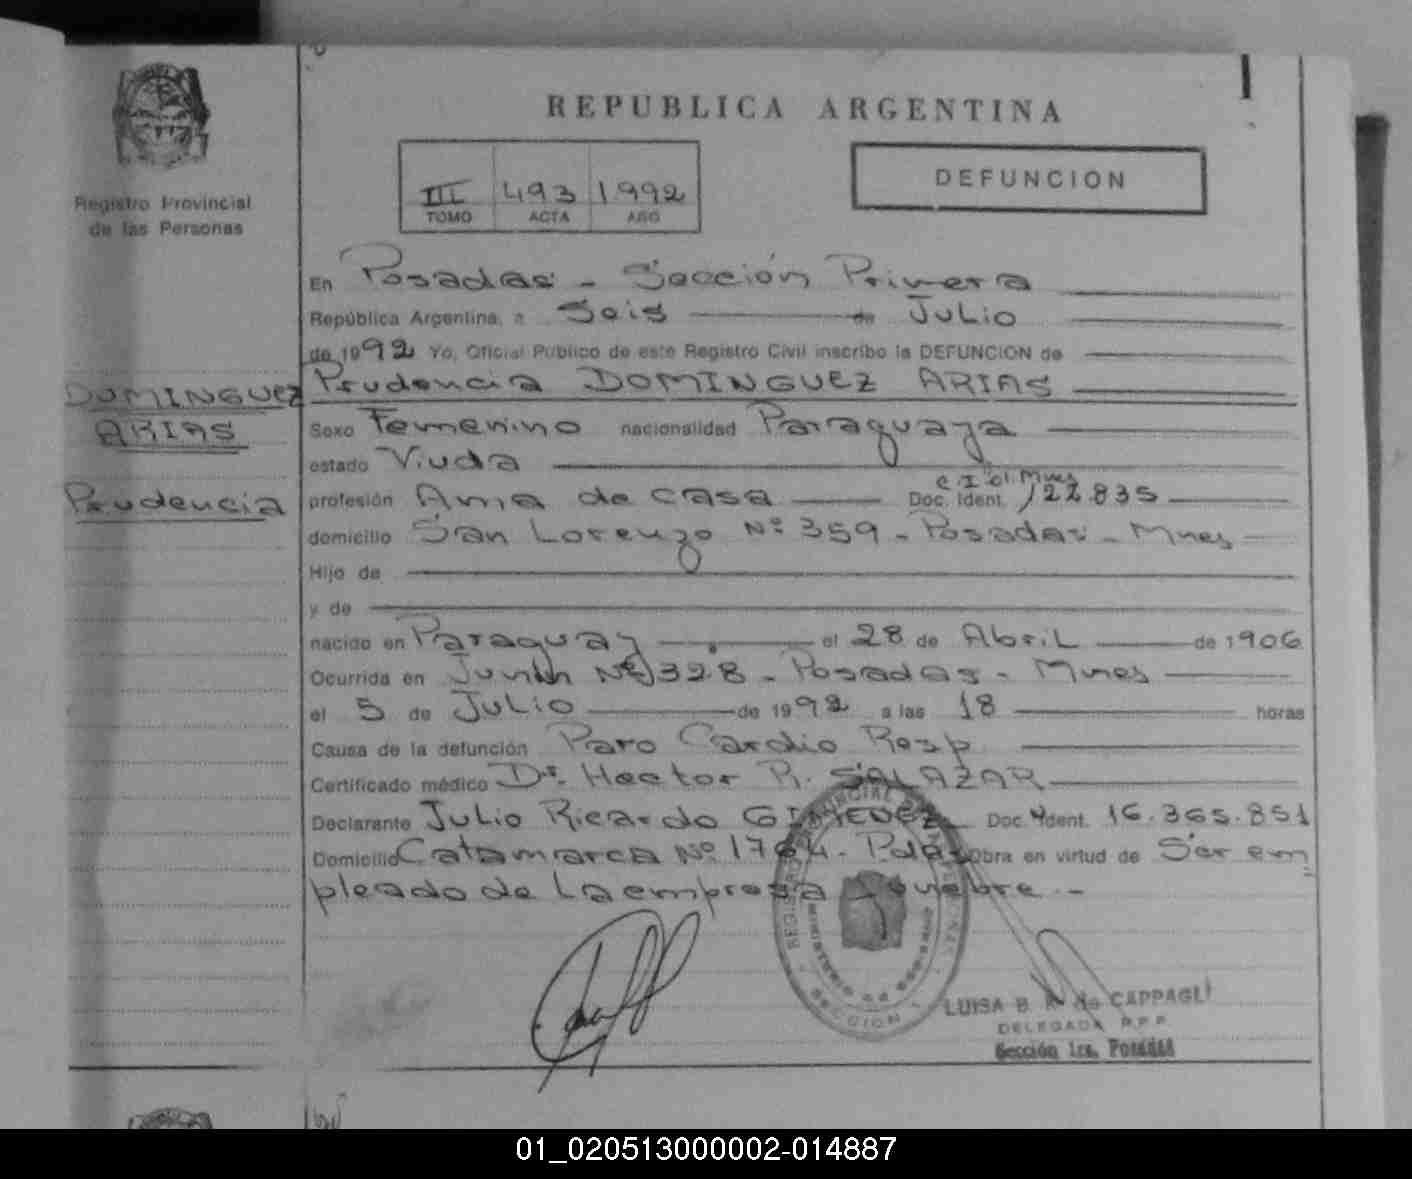 REPUBLICA ARGENTINA
Registro Provincial
de las Personas
III 493 1992
TOMO ACTA AÑO
DEFUNCION
En Posadas - Sección Primera
República Argentina, a Seis de Julio
de 1992 Yo, Oficial Público de este Registro Civil inscribo la DEFUNCION de
DOMINGUEZ
ARIAS
Prudencia
Prudencia DOMINGUEZ ARIAS
Sexo Femenino nacionalidad Paraguaya
estado Viuda
profesión Ama de casa Doc. Ident. C.I. Mnes 122.835
domicilio San Lorenzo Nº 359 - Posadas - Mnes
Hijo de
y de
nacido en Paraguay el 28 de Abril de 1906
Ocurrida en Junín Nº 328 - Posadas - Mnes
el 5 de Julio de 1992 a las 18 horas
Causa de la defunción Paro Cardio Resp.
Certificado médico Dr. Hector R. SALAZAR
Declarante Julio Ricardo GIMENEZ Doc. Ident. 16.365.851
Domicilio Catamarca Nº 1764 - Pdas Obra en virtud de Ser em
pleado de La empresa Funebre. -
SECCION 1
LUISA B. R. de CAPPAGLI
DELEGADA R.P.P.
Sección 1ra. Posadas
01_020513000002-014887